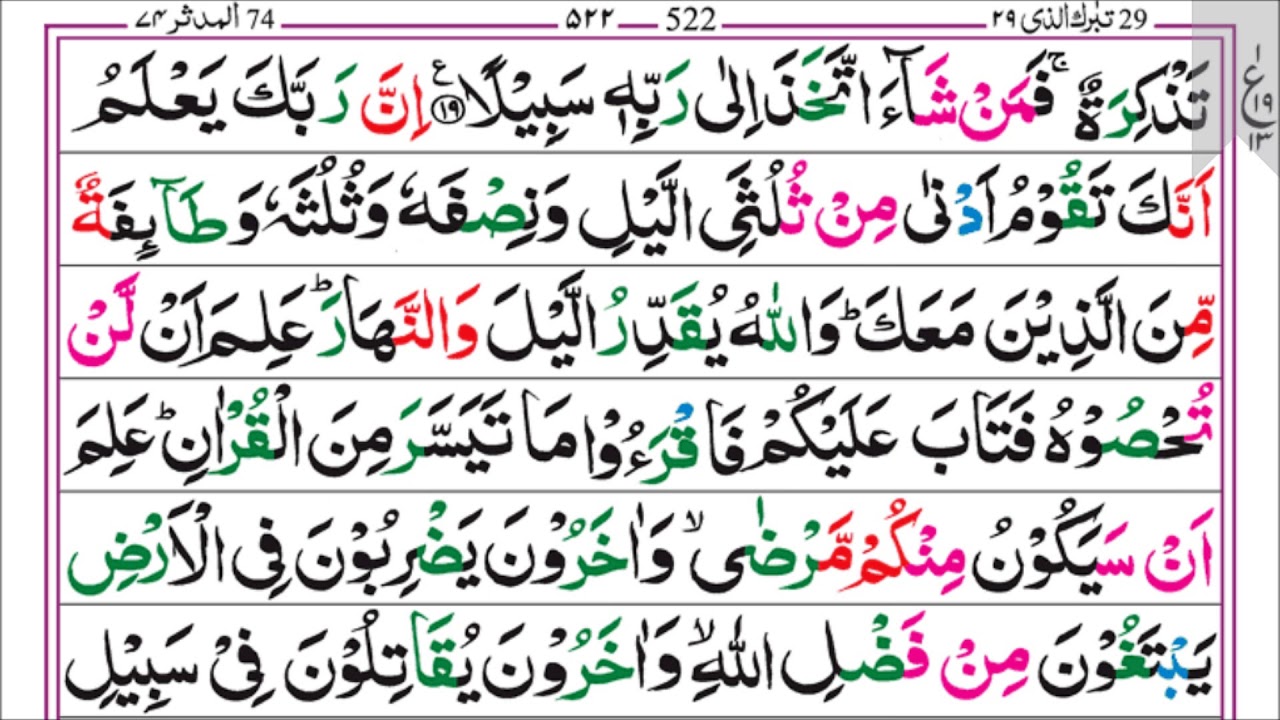 29 تبٰرك الذی ٢٩ 522 ۵۲۲ 74 المدثر ۷۴
تَذْكِرَةٌ ۚ فَمَنْ شَآءَ اتَّخَذَ اِلٰى رَبِّهٖ سَبِيْلًا ﴿۱۹﴾ ع اِنَّ رَبَّكَ يَعْلَمُ
ع ۱ ۱۹ ۱۳
اَنَّكَ تَقُوْمُ اَدْنٰى مِنْ ثُلُثَیِ الَّيْلِ وَنِصْفَهٗ وَثُلُثَهٗ وَطَآىِٕفَةٌ
مِّنَ الَّذِيْنَ مَعَكَ ؕ وَاللّٰهُ يُقَدِّرُ الَّيْلَ وَالنَّهَارَ ؕ عَلِمَ اَنْ لَّنْ
تُحْصُوْهُ فَتَابَ عَلَيْكُمْ فَاقْرَءُوْا مَا تَيَسَّرَ مِنَ الْقُرْاٰنِ ؕ عَلِمَ
اَنْ سَيَكُوْنُ مِنْكُمْ مَّرْضٰى ۙ وَاٰخَرُوْنَ يَضْرِبُوْنَ فِی الْاَرْضِ
يَبْتَغُوْنَ مِنْ فَضْلِ اللّٰهِ ۙ وَاٰخَرُوْنَ يُقَاتِلُوْنَ فِیْ سَبِيْلِ